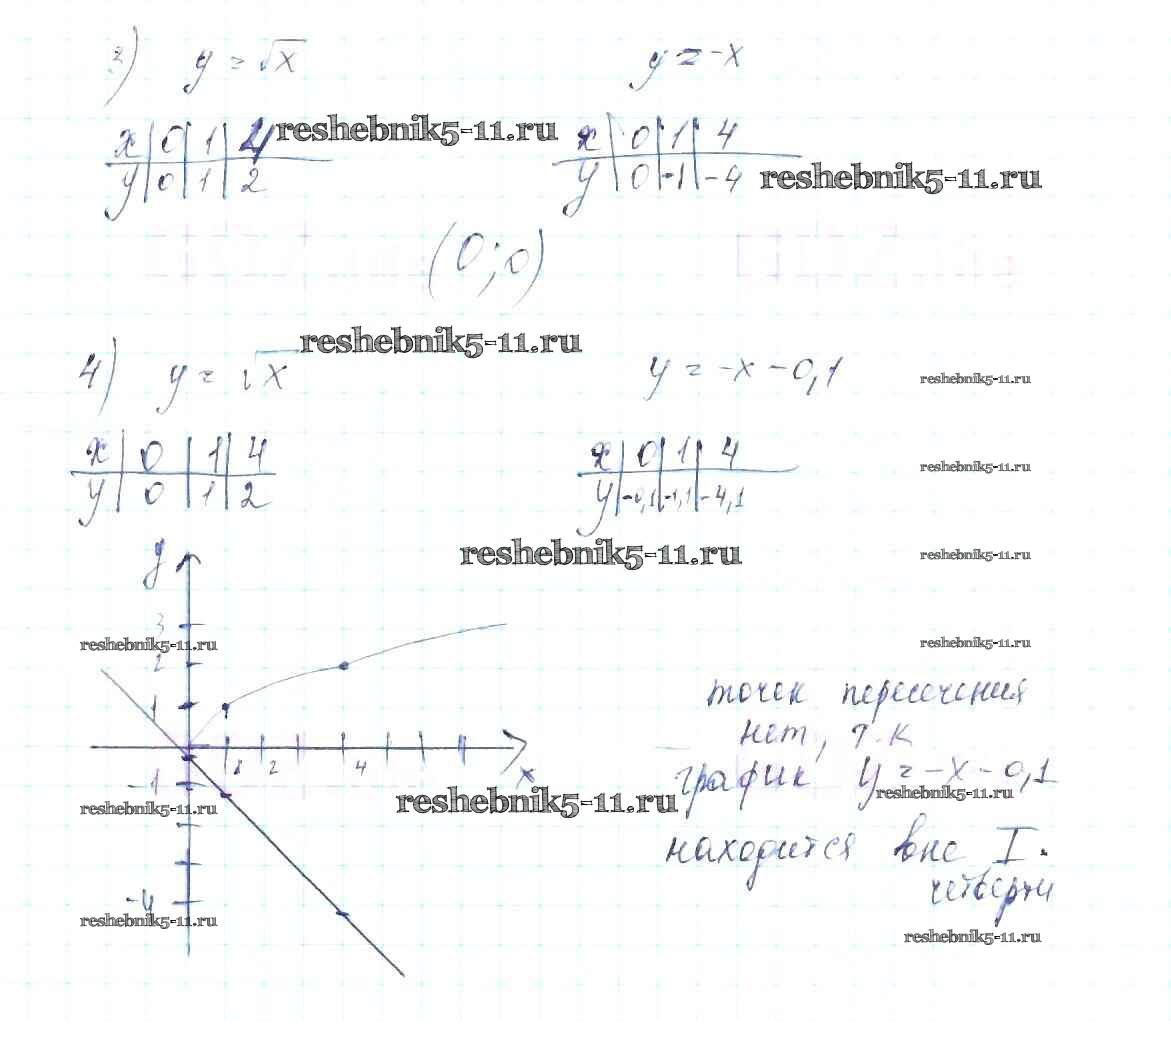 3) y = √x y = -x
x | 0 | 1 | 4 reshebnik5-11.ru x | 0 | 1 | 4
y | 0 | 1 | 2 y | 0 | -1 | -4 reshebnik5-11.ru
(0; 0)
reshebnik5-11.ru
4) y = √x y = -x - 0,1 reshebnik5-11.ru
x | 0 | 1 | 4 x | 0 | 1 | 4 reshebnik5-11.ru
y | 0 | 1 | 2 y | -0,1 | -1,1 | -4,1
y reshebnik5-11.ru reshebnik5-11.ru
3
reshebnik5-11.ru reshebnik5-11.ru
2
1
точек пересечения
нет, т.к
1 2 4 x
-1
график y = -x - 0,1
reshebnik5-11.ru reshebnik5-11.ru reshebnik5-11.ru
находится вне I
четверти
-4
reshebnik5-11.ru
reshebnik5-11.ru